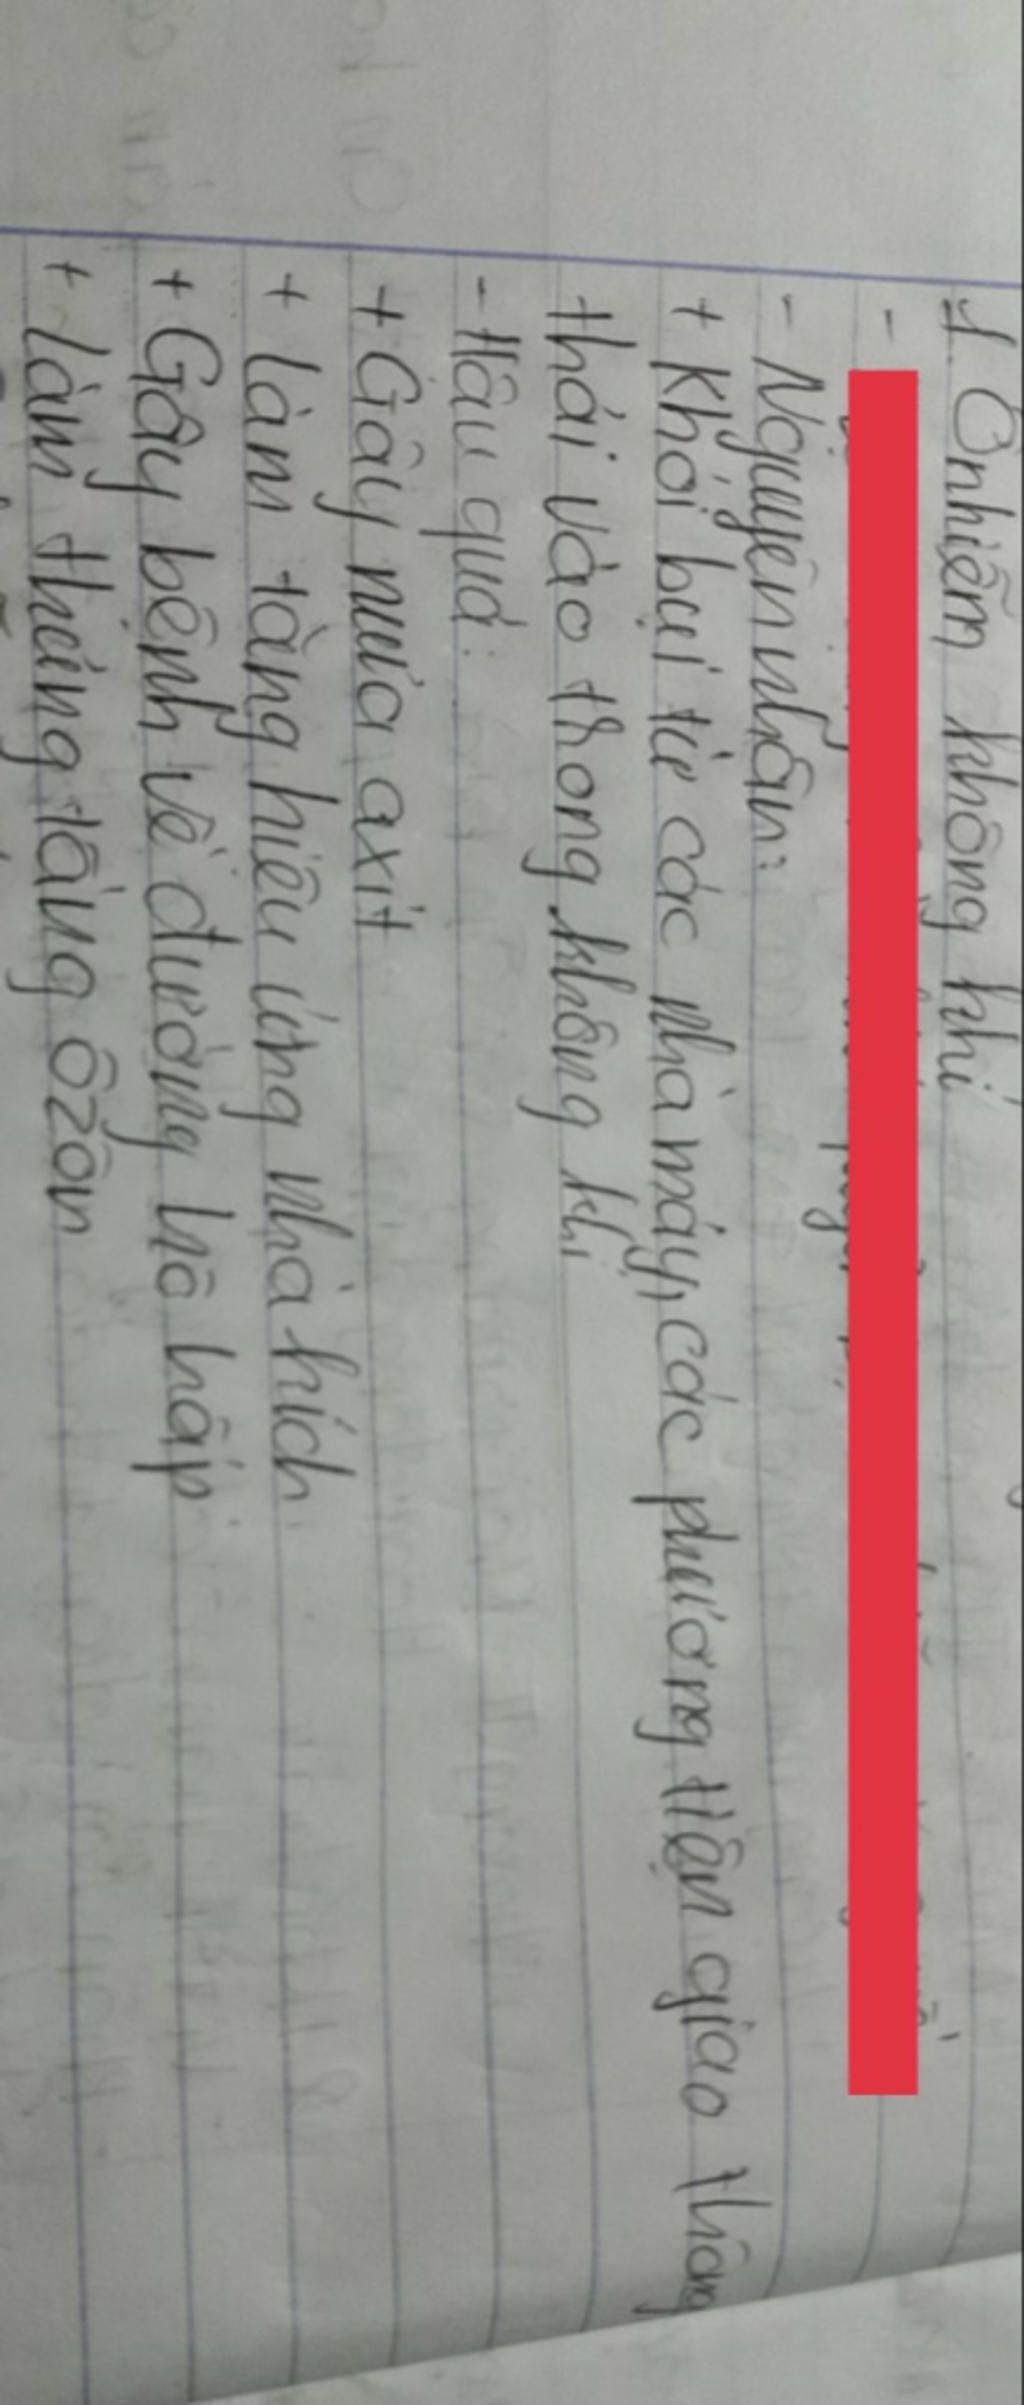 1. Ô nhiễm không khí
-
- Nguyên nhân:
+ Khói bụi từ các nhà máy, các phương tiện giao thông
thải vào trong không khí
- Hậu quả:
+ Gây mưa axit
+ làm tăng hiệu ứng nhà kính
+ Gây bệnh về đường hô hấp
+ làm thủng tầng ôzôn